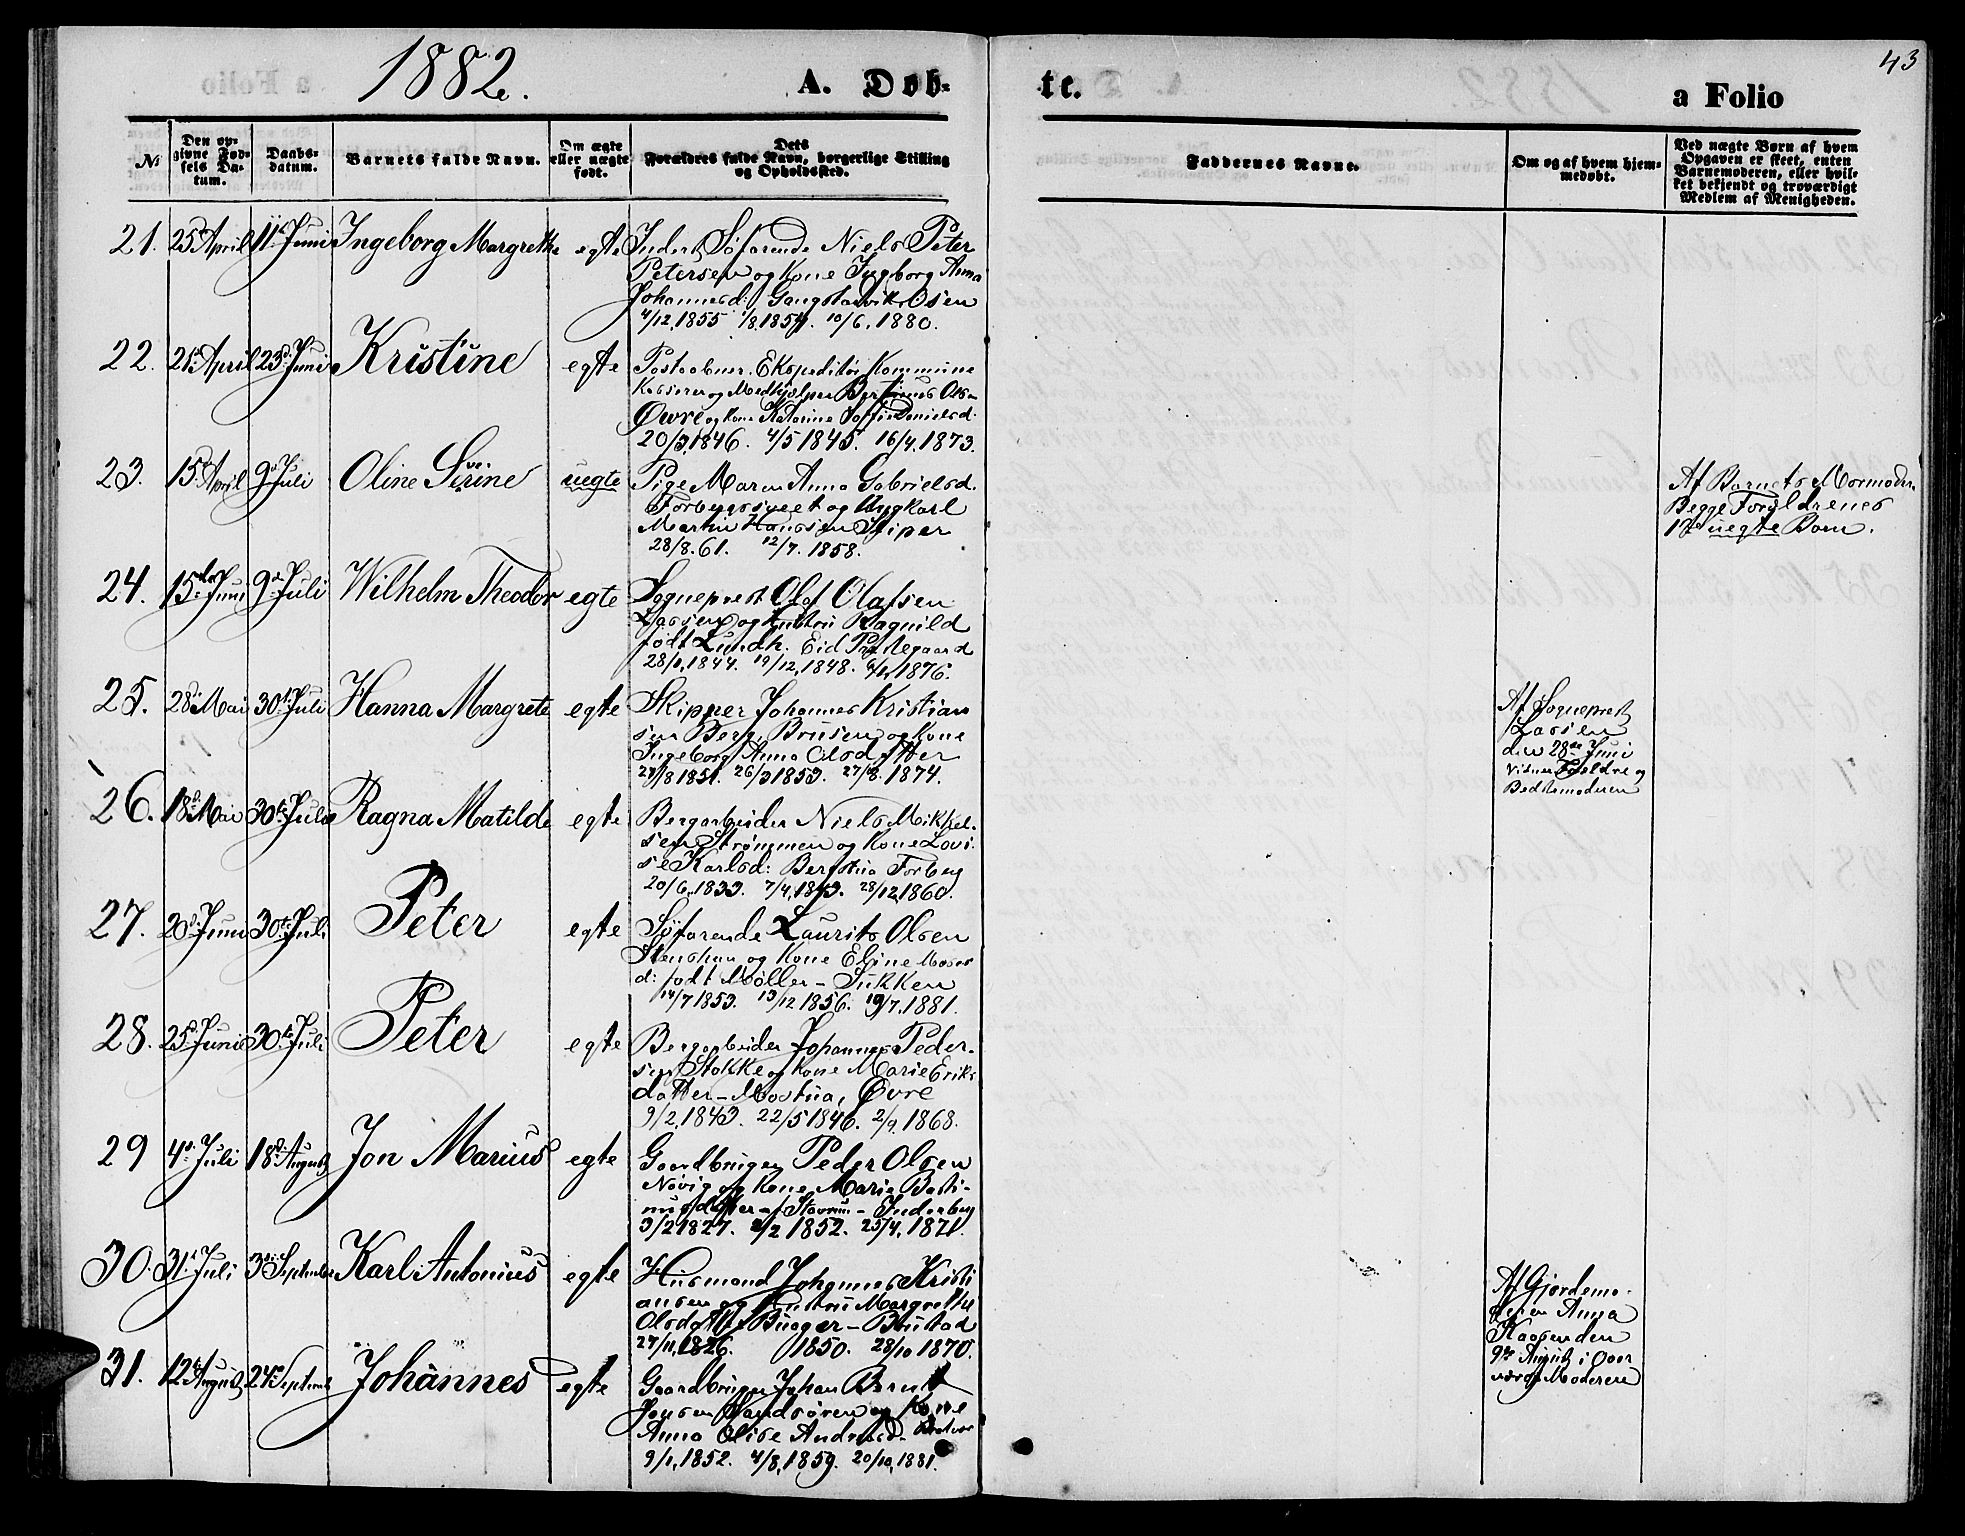 43
1882.
A. Døb-
te.
a Folio
No
Den op-
givne Fød-
sels Da-
tum.
Daabs-
datum.
Barnets fulde Navn.
Om ægte
eller uægte
født.
Dets
Forældres fulde Navn, borgerlige Stilling
og Opholdssted.
Faddernes Navne.
Om og af hvem hjem-
medøbt.
Ved uægte Børn af hvem
Opgaven er skeet, enten
Barnemoderen, eller hvil-
ket bekjendt og troværdigt
Medlem af Menigheden.
21. 25de April 11te Juni Ingeborg Margrethe egte Søfarende Niels Peter
Petersen og Kone Ingborg Anna
Johannesd: Gangstadvik Osen
4/12, 1855 10/6, 1880.
22. 21de April 23de Juni Kristine egte Postaabner. Ekspeditør Kommune
Kasserer og Medhjelper Bertinus Olsen
Øvre og kone Katarina Danielsd:
20/3, 1846. 4/5 1845. 16/4, 1873.
23. 15de April 9de Juli Oline Serine uegte Pige Maren Anna Gabrielsd.
og Ungkarl
Martin Hanssen
28/8. 61. 12/7. 1858.
Af Barnets Mormoder.
Begge Forældrenes
1ste uegte Barn.
24. 15de Juni 9de Juli Wilhelm Theodor egte Sogneprest Olaf Olafsen
Larsen og Hustru Ragnild
født Lundh. Eid Prestegaard
28/1, 1844. 19/12, 1848. 1876.
25. 28de Mai 30te Juli Hanna Margrete egte Skipper Johannes Kristian
sen Berg, Brusen og kone
Ingeborg Anna Olsdatter
1851. 26/3 1853. 27/8. 1874.
Af Sogneprest
Larsen
den 28de Juni
Vidner Foreldre og
Bedstemoderen
26. 18de Mai 30te Juli Ragna Matilde egte Bergarbeider Niels Mikkel-
sen Strømmen og Kone Lovi-
se Karlsd: Bergstua Forberg
20/6, 1833. 7/4, 1843. 28/12, 1860.
27. 20de Juni 30te Juli Peter egte Søfarende Laurits Olsen
Stenshau og Kone Eline Moses
d: født Møller - Sukken
14/7 1853. 13/12 1856. 19/7, 1881.
28. 25de Juni 30te Juli Peter egte Bergarbeider Johannes Peder-
sen Stokke og Kone Marie Eriks
datter - Mostua, Øvre
9/2, 1843. 22/5 1846. 2/9, 1868.
29 4de Juli 18de August Jon Marius egte Gaardbruger Peder Olsen
Nøvig og Kone Marie Basti-
nusdatter af Stavrum - Inderberg
3/2 1827. 2/2 1852. 25/4, 1871.
30. 31te Juli 3die September Karl Antonius egte Husmand Johannes Kristi
ansen og Hustru Margrethe
Olsdatter Bugger - Brustad
27/11, 1826. 1850. 28/10 1870.
Af Gjordemo-
deren Anna
Kaasen den
9de August i Over
vær af Moderen
31. 12te August 24de Septemb Johannes egte Gaardbruger Johan Bernt
Jensen Sandsøren og Kone
Anna Olise Andreasd.
9/1, 1852. 4/8, 1859. 20/10, 1881.